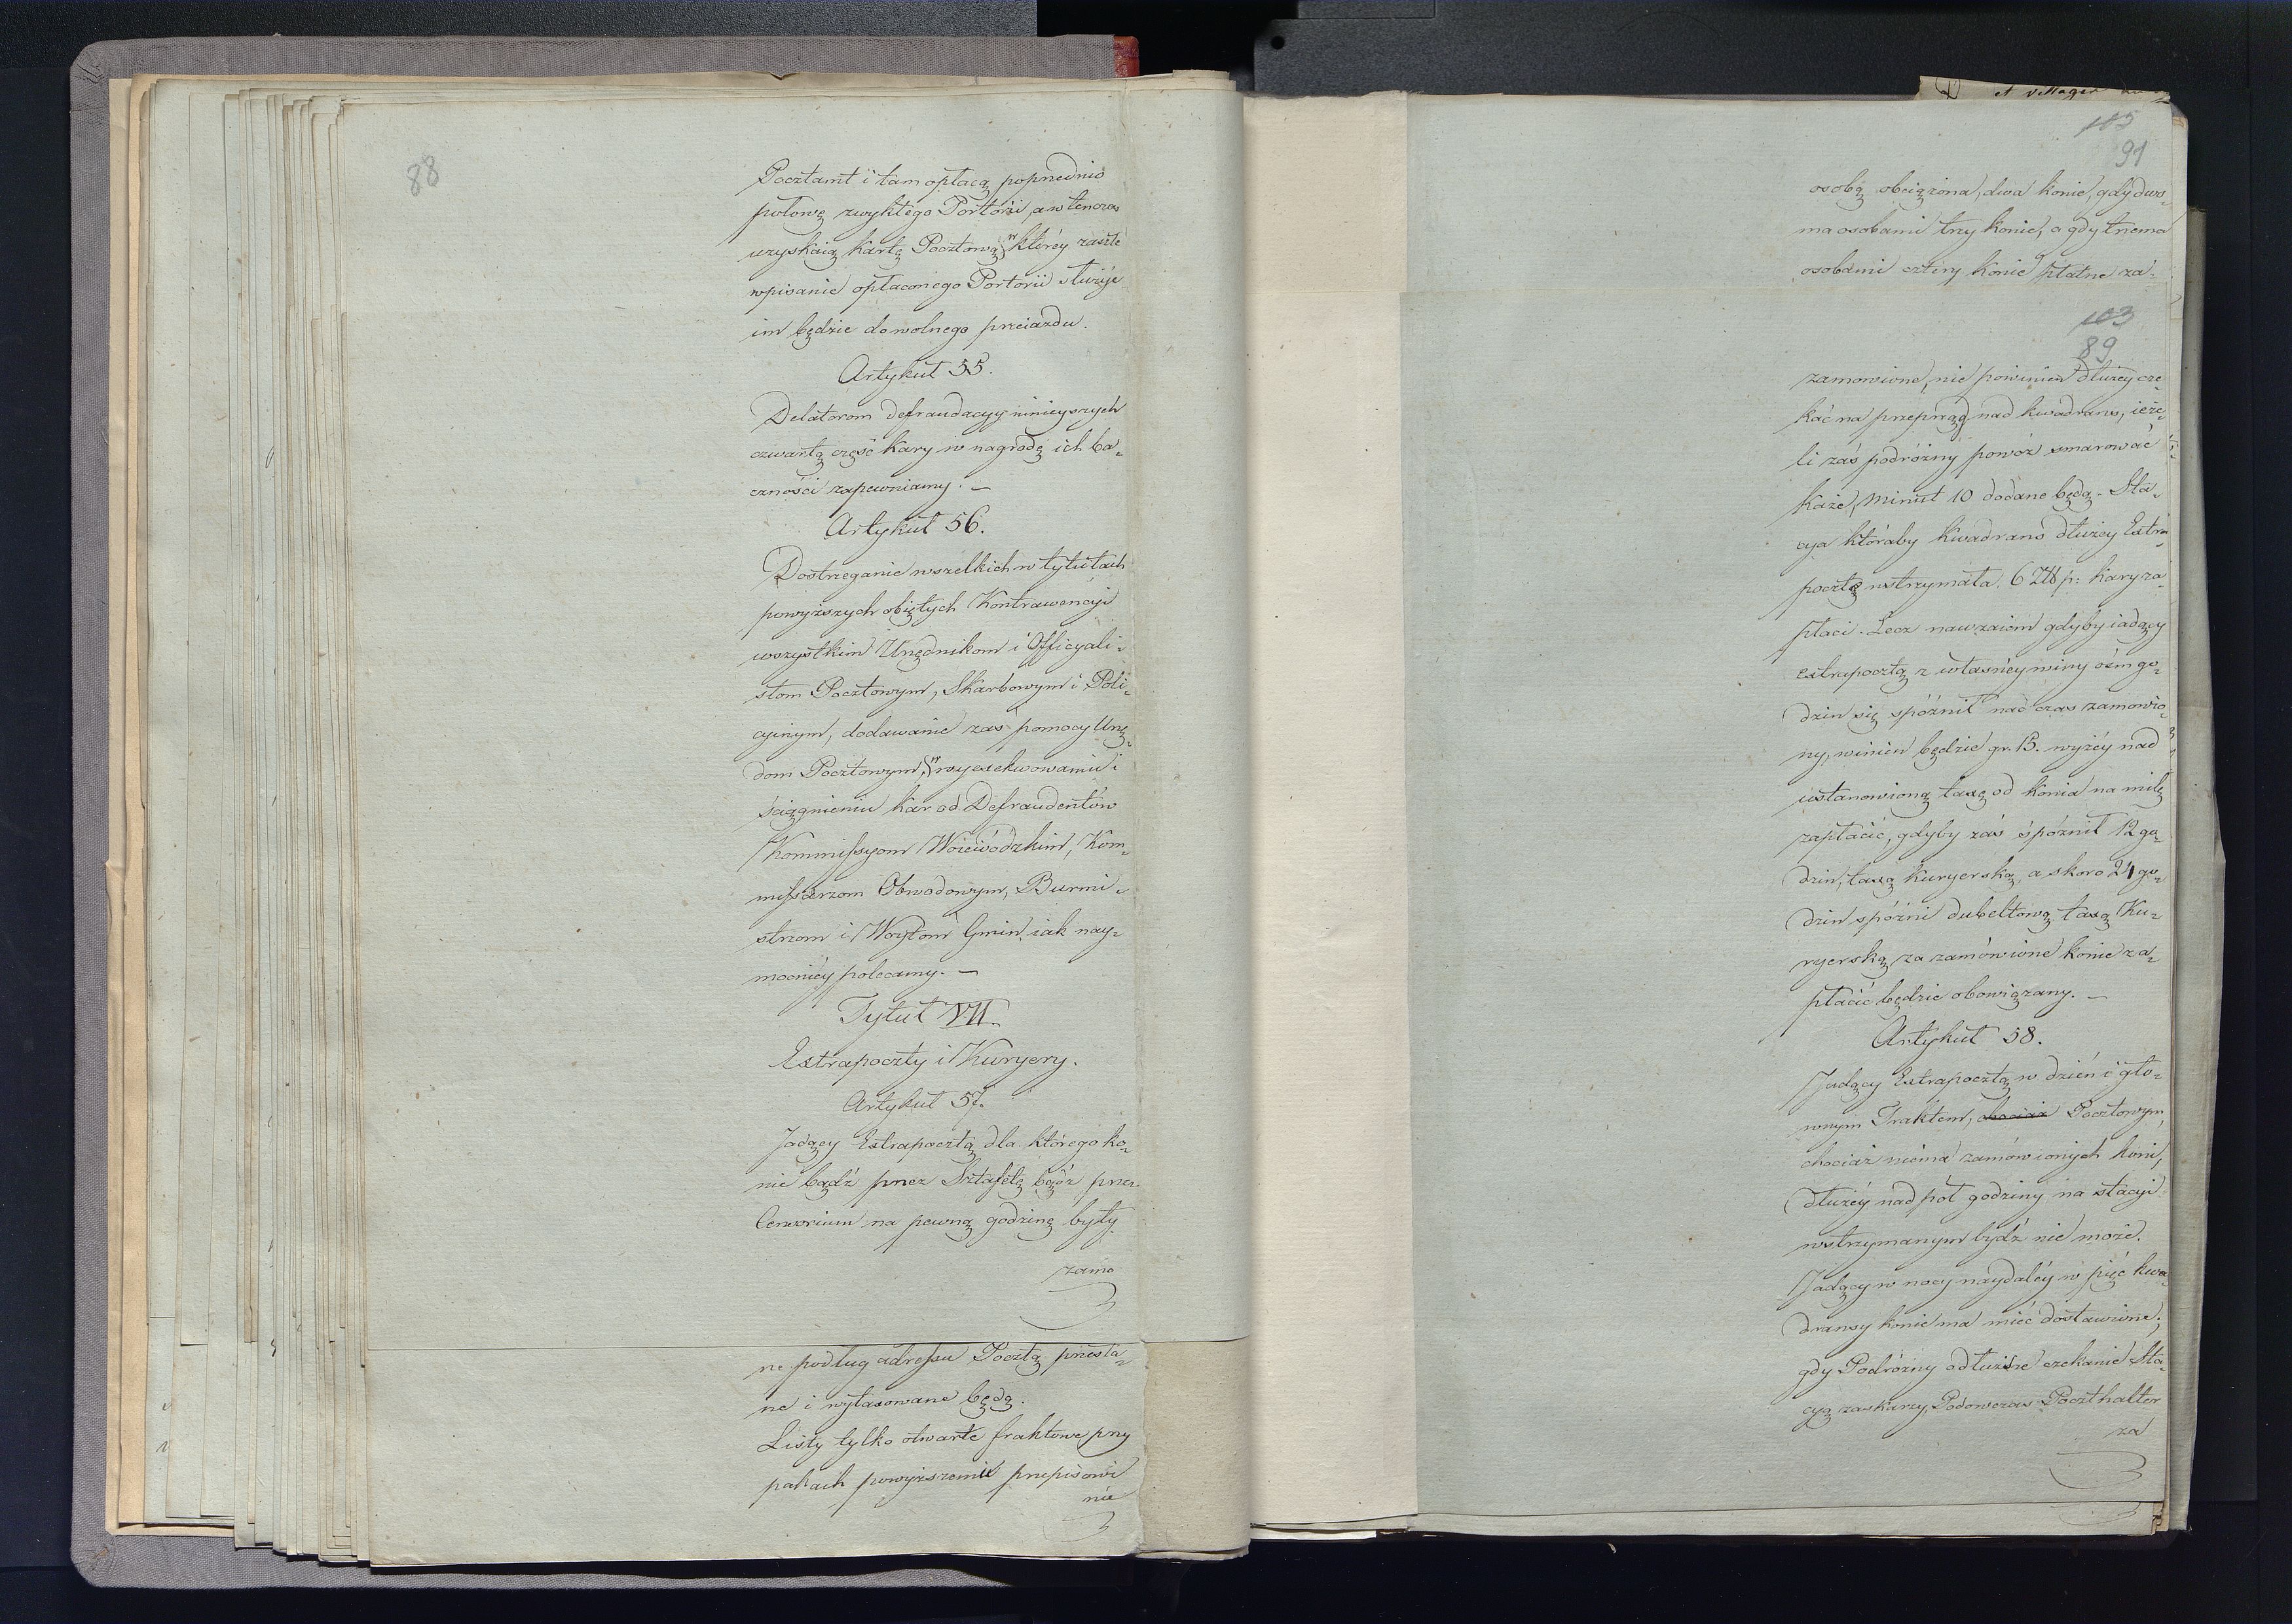 88
Pocztamt i tam opłacą poprzednio
połowę zwykłego Portorii, a wtenczas
uzyskaią kartę Pocztową w któréy zaszłe
wpisanie opłaconego Portorii służyć
im będzie do wolnego przeiazdu.
Artykuł 55.
Delatorom defraudacyy ninieyszych
czwartą część kary w nagrodę ich ba-
czności zapewniamy. —
Artykuł 56.
Dostrzeganie wszelkich w tytułach
powyższych obiętych Kontrawencyi
wszystkim Urzędnikom i Officyali-
stom Pocztowym, Skarbowym i Poli-
cyinym, dodawanie zaś pomocy Urzę-
dom Pocztowym, w wyexekwowaniu i
ściągnieniu kar od Defraudentów
Kommissyom Woiewódzkim, Kom-
missarzom Obwodowym, Burmi-
strzom i Woytom Gmin, iak nay-
mocniéy polecamy. —
Tytuł VII.
Extrapoczty i Kuryery.
Artykuł 57.
Jadący Extrapocztą, dla którego ko-
nie bądź przez Sztafetę bądź przez
Cursorium na pewną godzinę były
zamo
ne podług adressu Pocztą przesła-
ne i wytaxowane będą.
Listy tylko otwarte fraktowe przy
pakach powyższemu przepisowi
nie
et villages
105
91
osobą obciążona, dwa konie, gdy dwo-
ma osobami trzy konie, a gdy trzema
osobami cztery konie płatne za-
103
89
zamowione, nie powinien dłużéy cze-
kać na przeprząg nad kwadrans, ieże-
li zaś podróżny powóz smarować
każe, minut 10 dodane będą. Sta-
cya któraby kwadrans dłużéy Extra
pocztę wstrzymała, 6 Złł p: kary za-
płaci. Lecz nawzaiem gdyby iadący
extrapocztą z własnéy winy ośm go-
dzin się spóźnił nad czas zamowio-
ny, winien będzie gr. 15. wyżéy nad
ustanowioną taxę od konia na milę
zapłacić, gdyby zaś spóźnił 12 go-
dzin, taxą Kuryerską, a skoro 24 go-
dzin spóźni dubeltową taxą Ku-
ryerską za zamówione konie za-
płacić będzie obowiązany. —
Artykuł 58.
Jadący Extrapocztą w dzień i głó-
wnym Traktem, chociaż Pocztowym,
chociaż niema zamówionych koni,
dłużéy nad pół godziny na stacyi
wstrzymanym bydź nie może.
Jadący w nocy naydaléy w pięć kwa-
dransy konie ma mieć dostawione;
gdy Podróżny o dłuższe czekanie Sta-
cyą zaskarzy, Podowczas Poczthalter
za